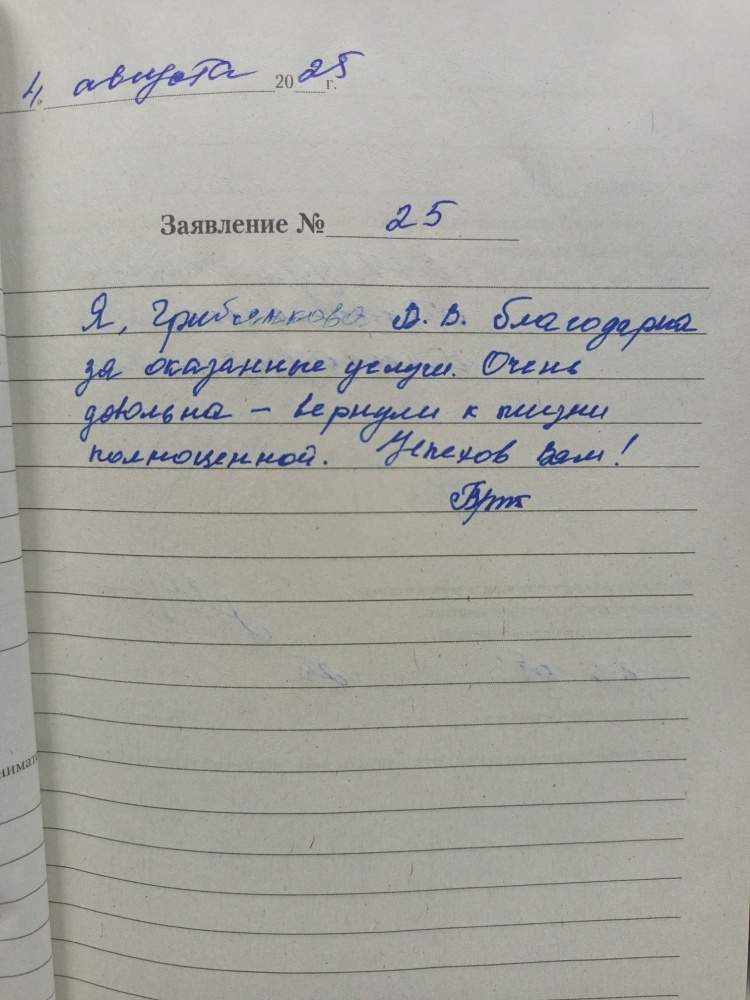 4. августа 2025 г.
Заявление № 25
Я, В. благодарна
за оказанные услуги. Очень
довольна – вернули к жизни
полноценной. Успехов Вам!